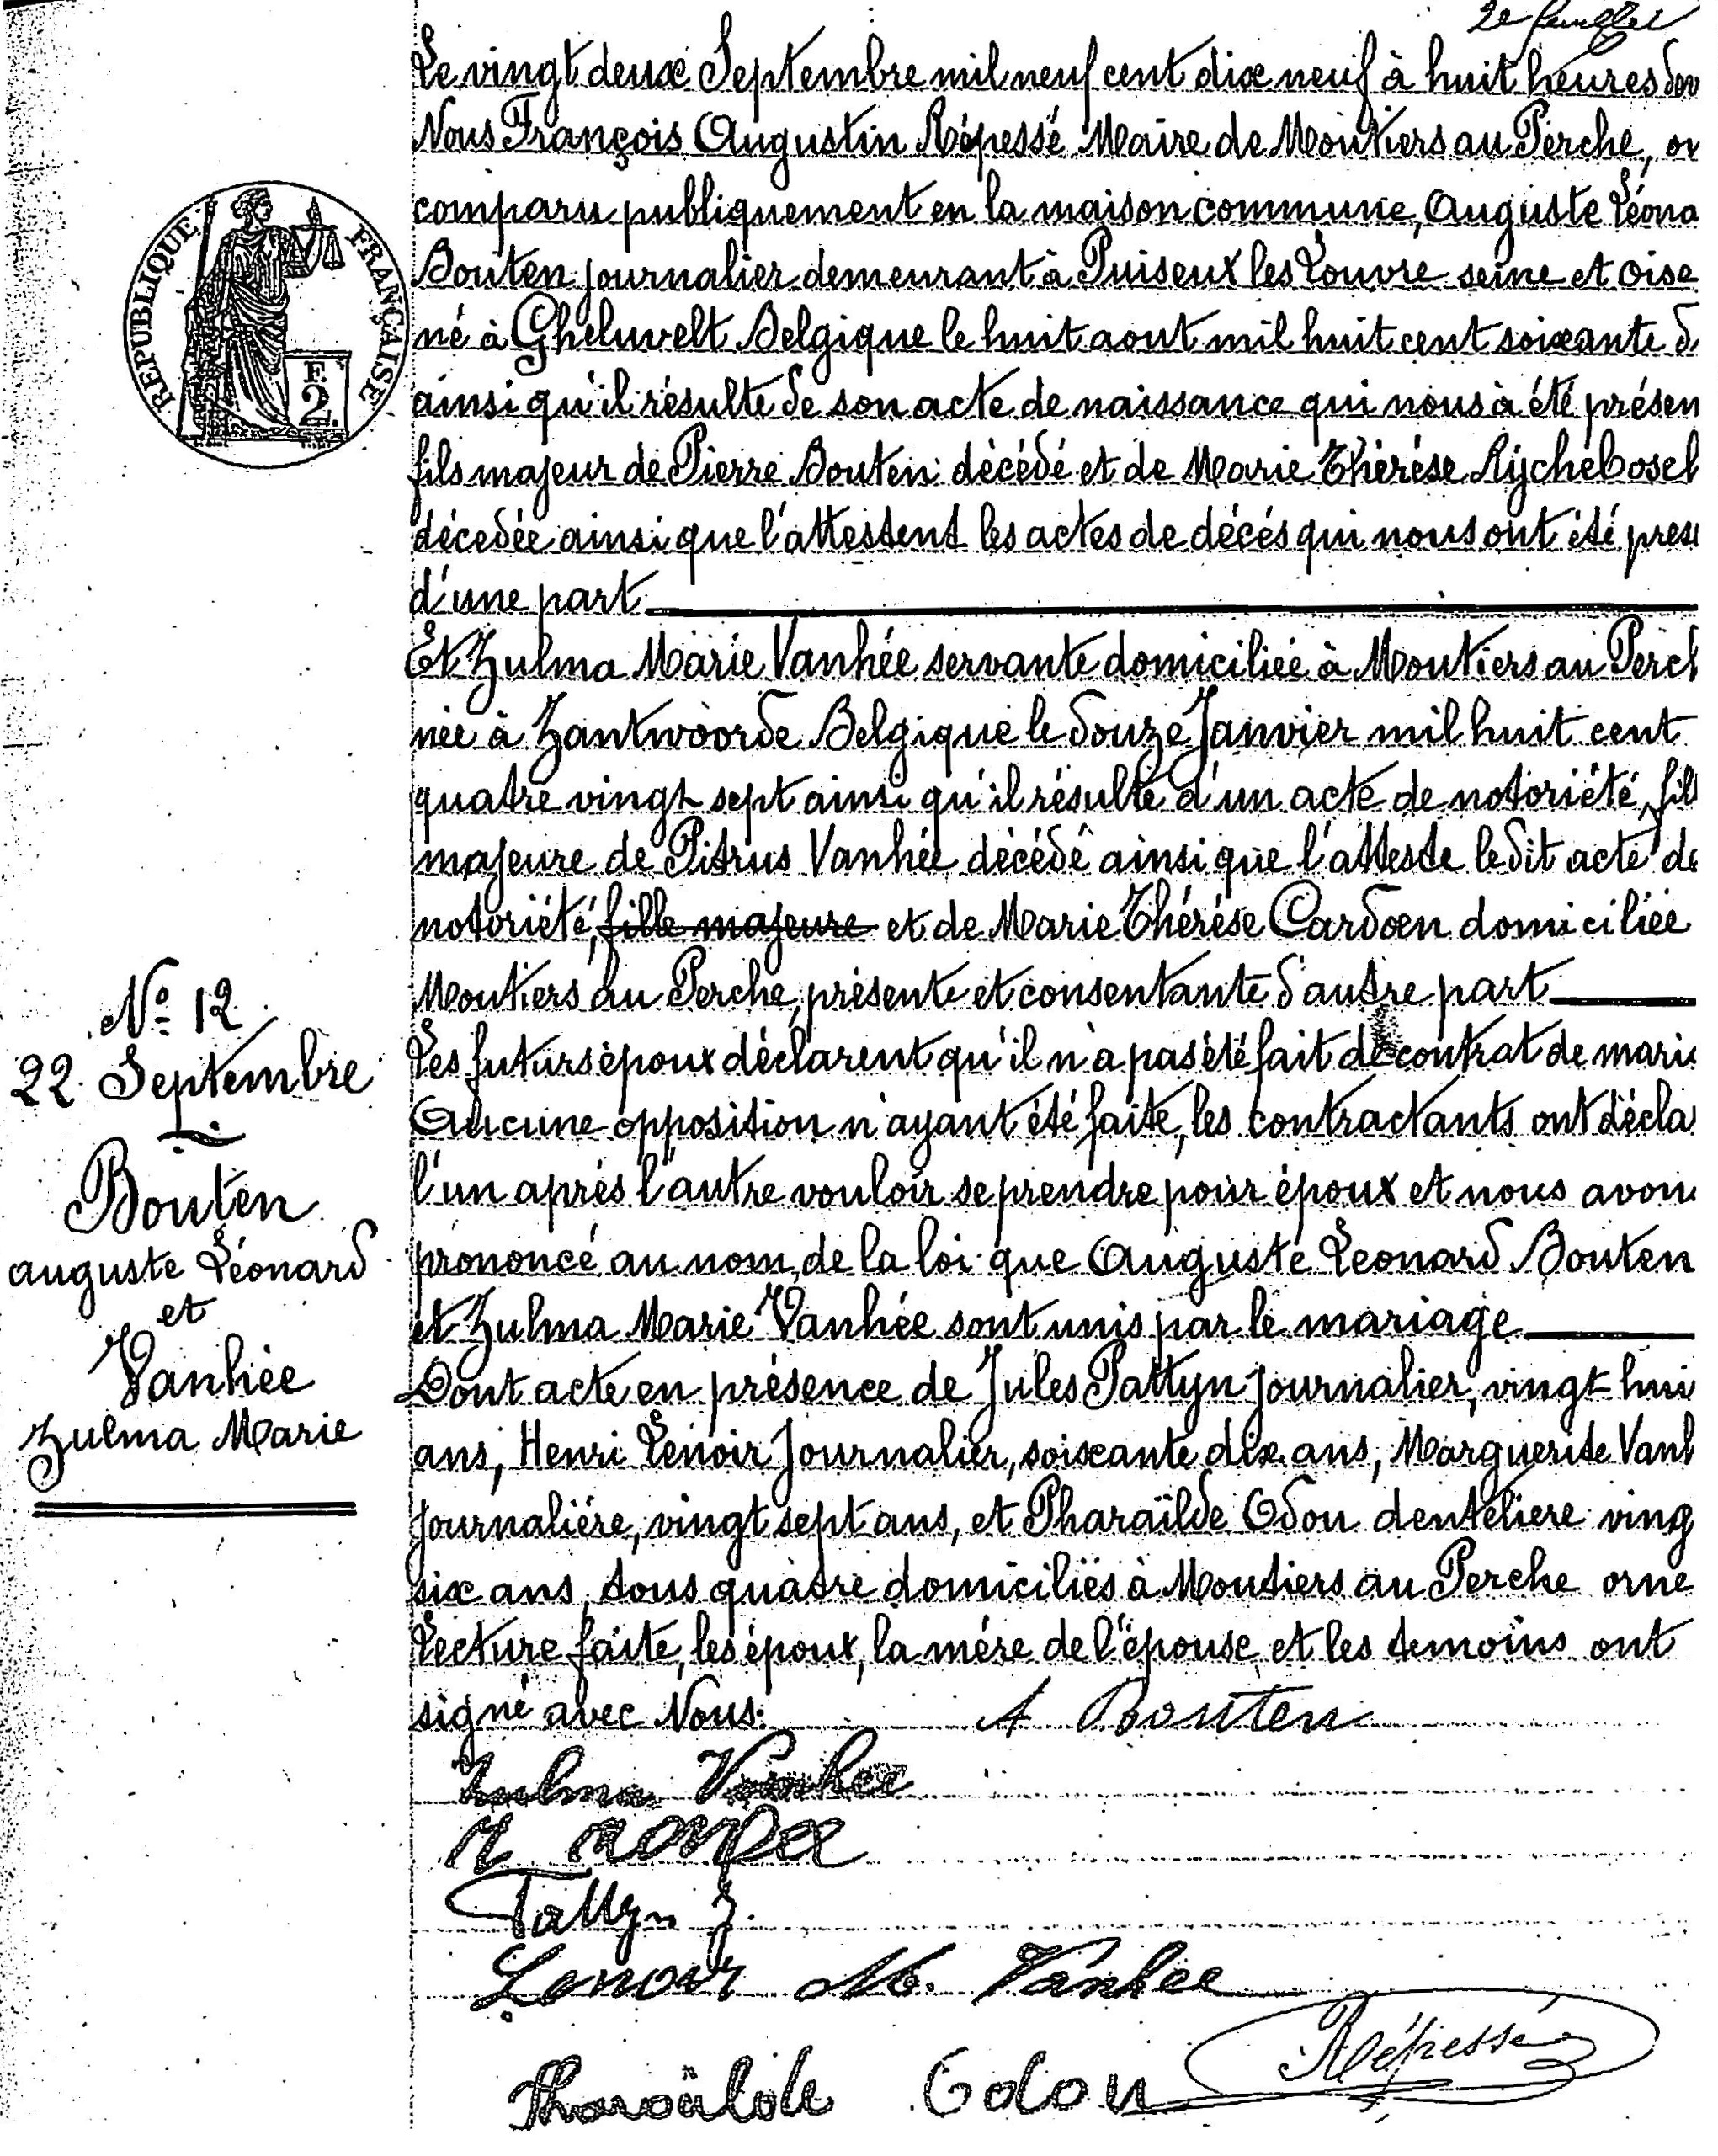 2e feuillet
Le vingt deux Septembre mil neuf cent dix neuf à huit heures
Nous François Augustin Répessé Maire de Moutiers au Perche, on
comparu publiquement en la maison commune, Auguste Léona
Bouten journalier demeurant à Puiseux les Louvre seine et oise
né à Gheluvelt Belgique le huit aout mil huit cent soixante d
ainsi qu'il résulte de son acte de naissance qui nous à été présen
fils majeur de Pierre Bouten décédé et de Marie Thérése Rijchebosch
décedée ainsi que l'attestent les actes de décés qui nous ont été prese
d'une part
Et Zulma Marie Vanhée servante domiciliée à Moutiers au Perch
née à Zantwoorde Belgique le douze Janvier mil huit cent
quatre vingt sept ainsi qu'il résulte d'un acte de notoriété, fill
majeure de Pitrus Vanhée décédé ainsi que l'atteste le dit acte de
notoriété, fille majeure et de Marie Thérése Cardoen domiciliée
Moutiers au Perche, présente et consentante d'autre part
Les futurs époux déclarent qu'il n'a pas été fait de contrat de maria
Aucune opposition n'ayant été faite, les contractants ont décla
l'un aprés l'autre vouloir se prendre pour époux et nous avons
prononcé au nom de la loi que Auguste Leonard Bouten
et Zulma Marie Vanhée sont unis par le mariage
Dont acte en présence de Jules Pattyn journalier, vingt hui
ans, Henri Lenoir Journalier, soixante dix ans, Marguerite Vanh
journaliére, vingt sept ans, et Pharaïlde Odou denteliere ving
six ans, tous quatre domiciliés à Moutiers au Perche orne
Lecture faite, les époux, la mére de l'épouse et les temoins ont
signé avec Nous:
A Bouten
Zulma Vanhee
Pattyn J.
Lenoir M. Vanhee
Répessé
Pharaïlde Odou
REPUBLIQUE FRANÇAISE
F.
2.
No 12
22 Septembre
Bouten
auguste Léonard
et
Vanhée
Zulma Marie